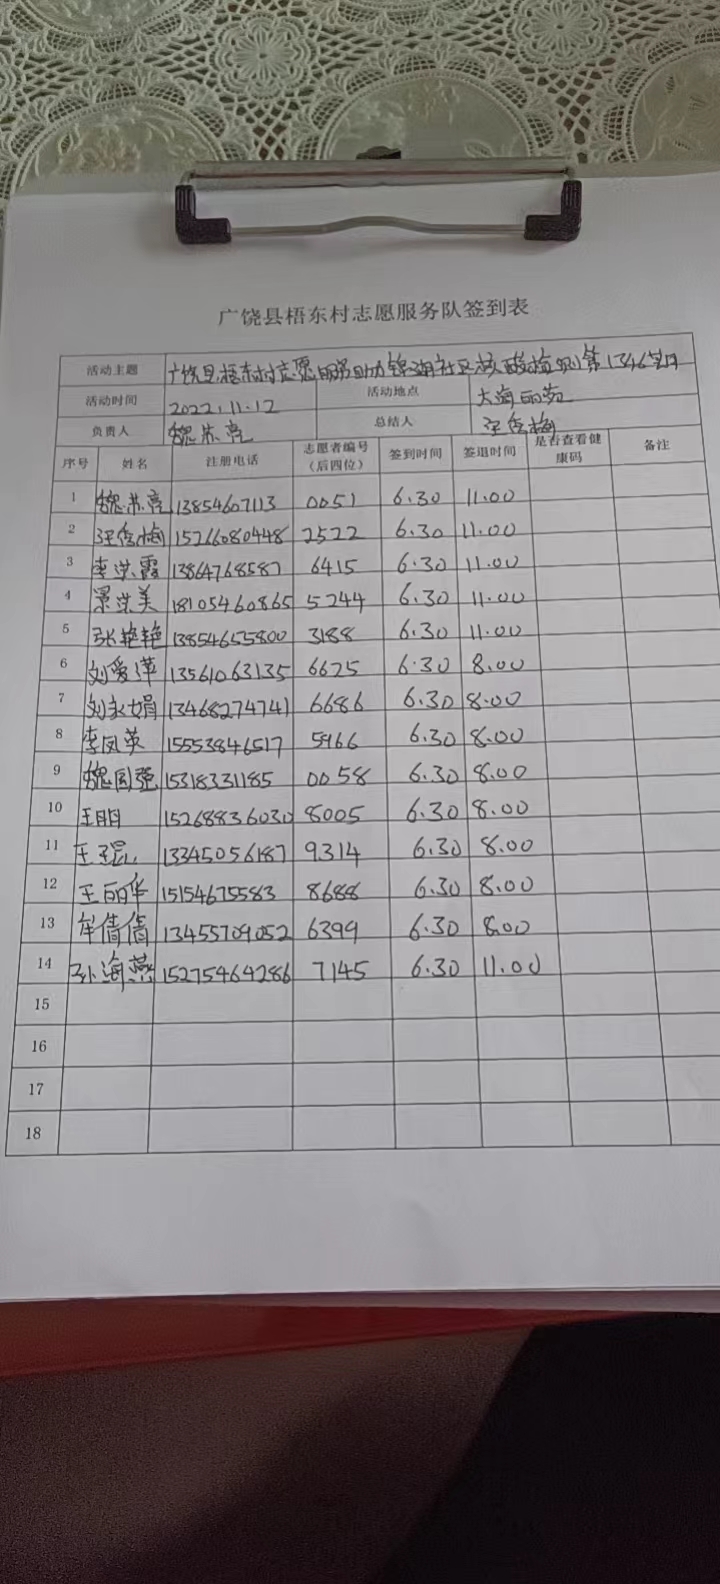 广饶县梧东村志愿服务队签到表
活动主题 广饶县梧东村志愿服务助力锦湖社区核酸检测第1346
活动时间 2022.11.12 活动地点 大海丽苑
负责人 魏苏亮 总结人 汪俊梅
序号 姓名 注册电话 志愿者编号（后四位） 签到时间 签退时间 是否查看健康码 备注
1 魏苏亮 13854607113 0051 6.30 11.00
2 汪俊梅 15266080448 2522 6.30 11.00
3 李洪霞 13864768587 6415 6.30 11.00
4 景洪美 18105460865 5244 6.30 11.00
5 张艳艳 13854655800 3188 6.30 11.00
6 刘爱萍 13561063135 6625 6.30 8.00
7 刘永娟 13468274741 6686 6.30 8.00
8 李凤英 15553846517 5966 6.30 8.00
9 魏国强 15318331185 0058 6.30 8.00
10 王明 15268836030 8005 6.30 8.00
11 王琨 13345056187 9314 6.30 8.00
12 王丽华 15154675583 8688 6.30 8.00
13 牟倩倩 13455709052 6399 6.30 8.00
14 孙海燕 15275464286 7145 6.30 11.00
15
16
17
18